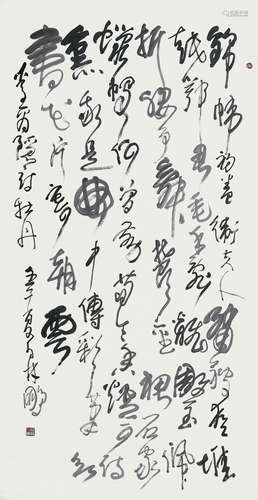 錦帏初卷衛夫人繡被猶堆
越鄂君垂手亂翻雕玉佩
折腰爭舞鬱金裙石家
蠟燭何曾剪荀令香爐可待
熏我是夢中傳彩筆欲
書花片寄朝雲
李商隱詩牡丹 壬午夏月林鵬